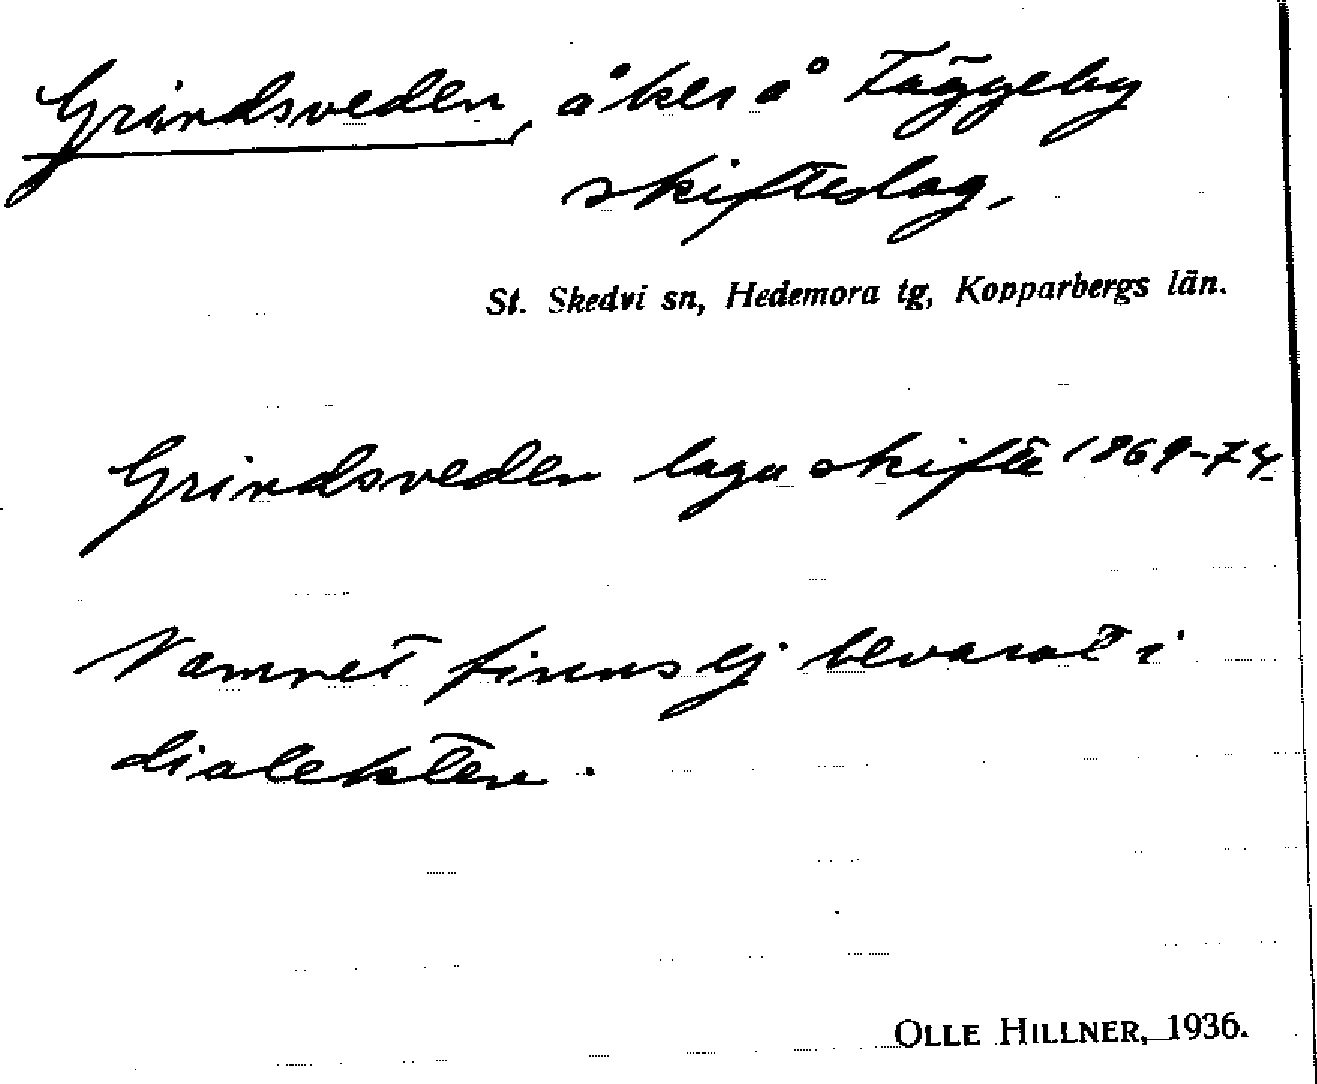 Grindsveden, åker å Täggeby
skifteslag,
St. Skedvi sn, Hedemora tg, Kopparbergs län.
Grindsveden laga skifte 1869-74
Namnet finns ej bevarat i
dialekten.
OLLE HILLNER, 1936.